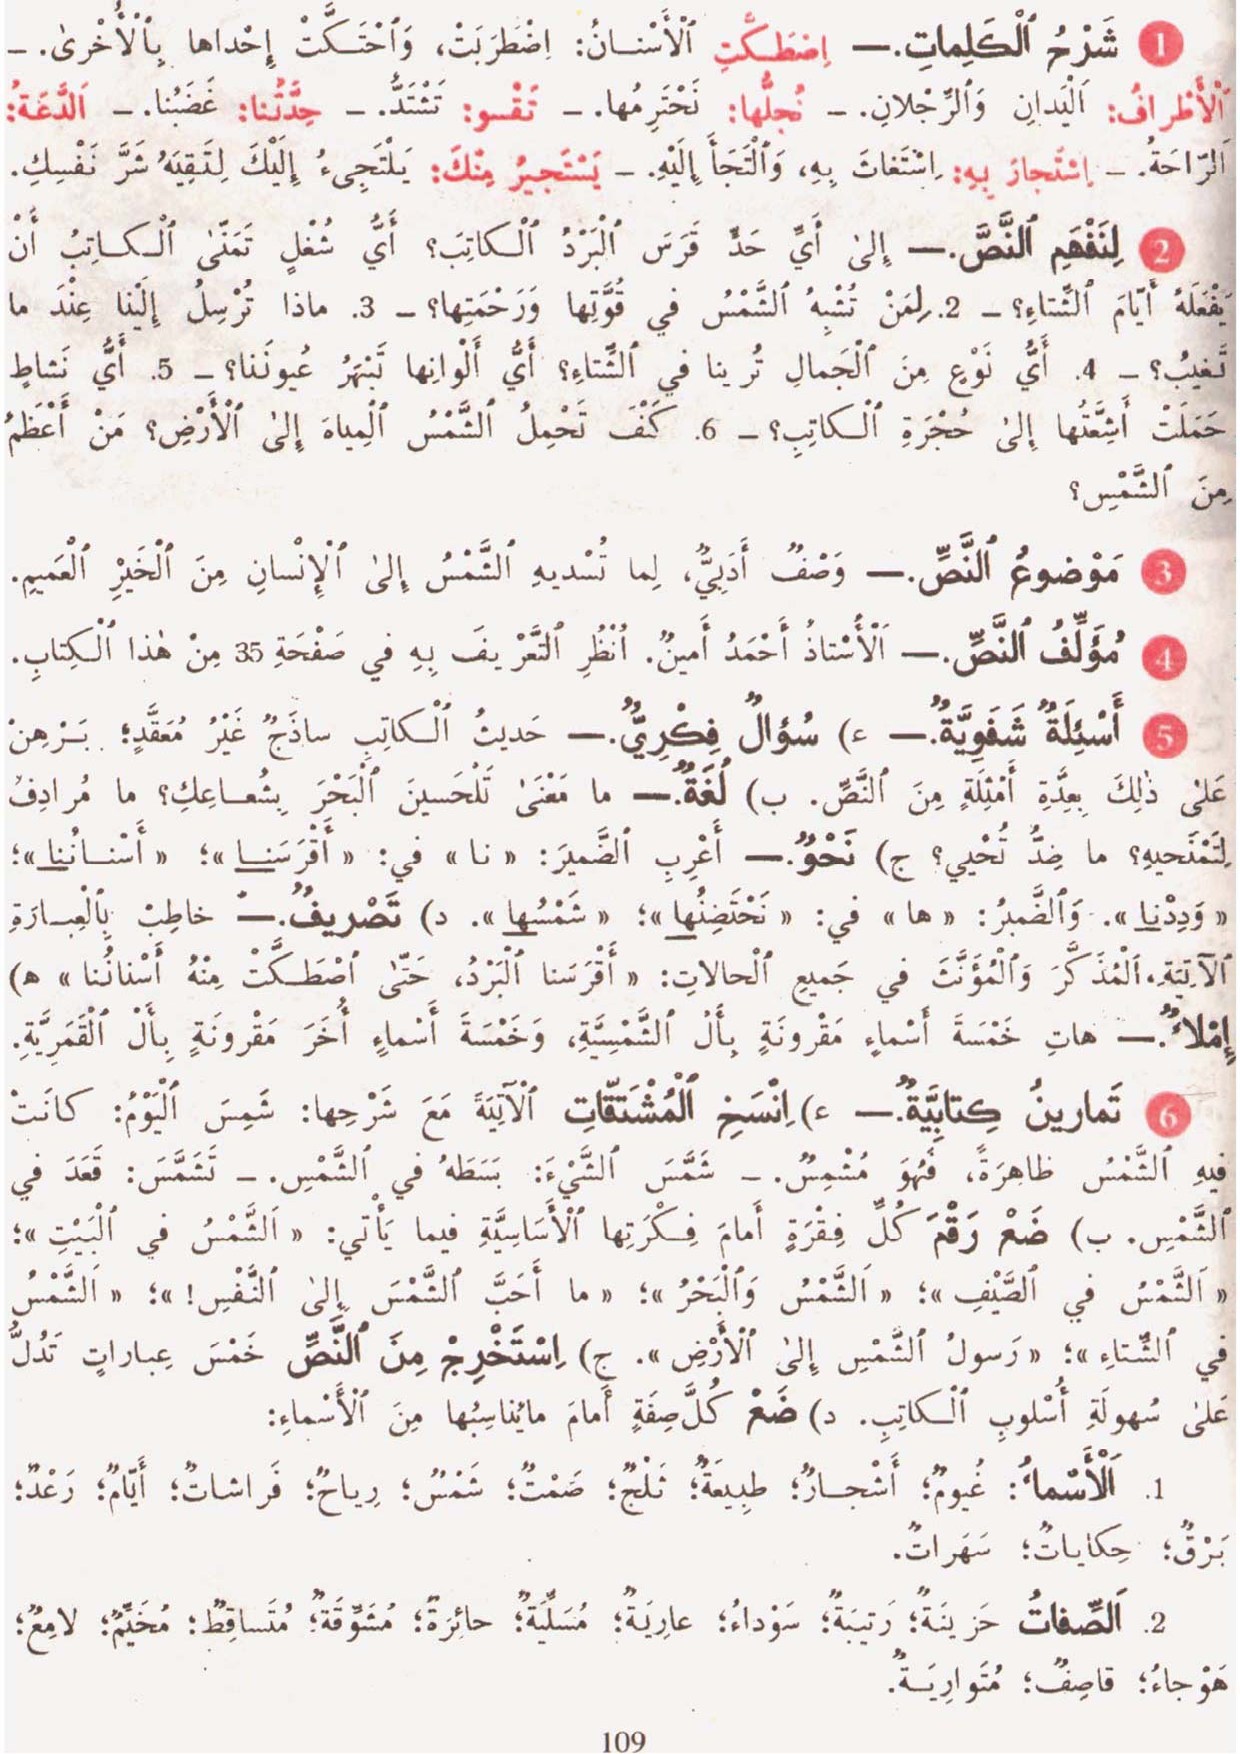 1 شَرْحُ ٱلْكَلِماتِ. — اِصْطَكَّتِ ٱلْأَسْنانُ: اِضْطَرَبَتْ، وَٱحْتَكَّتْ إِحْداها بِٱلْأُخْرىٰ. –
اَلْأَطْرافُ: اَلْيَدانِ وَٱلرِّجْلانِ. – نُجِلُّها: نَحْتَرِمُها. – تَقْسو: تَشْتَدُّ. – حِدَّتُنا: غَضَبُنا. – اَلدَّعَةُ:
اَلرّاحَةُ. – اِسْتَجارَ بِهِ: اِسْتَغاثَ بِهِ، وَٱلْتَجَأَ إِلَيْهِ. – يَسْتَجيرُ مِنْكَ: يَلْتَجِىءُ إِلَيْكَ لِتَقِيَهُ شَرَّ نَفْسِكِ.
2 لِنَفْهَمِ ٱلنَّصَّ. — إِلىٰ أَيِّ حَدٍّ قَرَسَ ٱلْبَرْدُ ٱلْكاتِبَ؟ أَيَّ شُغْلٍ تَمَنّىٰ ٱلْكاتِبُ أَنْ
يَفْعَلَهُ أَيّامَ ٱلشِّتاءِ؟ – 2. لِمَنْ تُشْبِهُ ٱلشَّمْسُ في قُوَّتِها وَرَحْمَتِها؟ – 3. ماذا تُرْسِلُ إِلَيْنا عِنْدَ ما
تَغيبُ؟ – 4. أَيُّ نَوْعٍ مِنَ ٱلْجَمالِ تُرينا في ٱلشِّتاءِ؟ أَيُّ أَلْوانِها تَبْهَرُ عُيونَنا؟ – 5. أَيُّ نَشاطٍ
حَمَلَتْ أَشِعَّتُها إِلىٰ حُجْرَةِ ٱلْكاتِبِ؟ – 6. كَيْفَ تَحْمِلُ ٱلشَّمْسُ ٱلْمِياهَ إِلىٰ ٱلْأَرْضِ؟ مَنْ أَعْظَمُ
مِنَ ٱلشَّمْسِ؟
3 مَوْضوعُ ٱلنَّصِّ. — وَصْفٌ أَدَبِيٌّ، لِما تُسْديهِ ٱلشَّمْسُ إِلىٰ ٱلْإِنْسانِ مِنَ ٱلْخَيْرِ ٱلْعَميمِ.
4 مُؤَلِّفُ ٱلنَّصِّ. — اَلْأُسْتاذُ أَحْمَدُ أَمينٌ. اُنْظُرِ ٱلتَّعْريفَ بِهِ في صَفْحَةِ 35 مِنْ هٰذا ٱلْكِتابِ.
5 أَسْئِلَةٌ شَفَوِيَّةٌ. — ء) سُؤالٌ فِكْرِيٌّ. — حَديثُ ٱلْكاتِبِ ساذَجٌ غَيْرُ مُعَقَّدٍ؛ بَرْهِنْ
عَلىٰ ذٰلِكَ بِعِدَّةِ أَمْثِلَةٍ مِنَ ٱلنَّصِّ. ب) لُغَةٌ. — ما مَعْنَىٰ تَلْحَسينَ ٱلْبَحْرَ بِشُعاعِكِ؟ ما مُرادِفُ
لِتَمْنَحيهِ؟ ما ضِدُّ تُحْيي؟ ج) نَحْوٌ. — أَعْرِبِ ٱلضَّميرَ: « نا » في: « أَقْرَسَنا »؛ « أَسْنانُنا »؛
« وَدِدْنا ». وَٱلضَّميرُ: « ها » في: « نَحْتَضِنُها »؛ « شَمْسُها ». د) تَصْريفٌ. — خاطِبْ بِٱلْعِبارَةِ
ٱلْآتِيَةِ. ٱلْمُذَكَّرَ وَٱلْمُؤَنَّثَ في جَميعِ ٱلْحالاتِ: « أَقْرَسَنا ٱلْبَرْدُ، حَتّىٰ ٱصْطَكَّتْ مِنْهُ أَسْنانُنا » ه)
إِمْلاءٌ. — هاتِ خَمْسَةَ أَسْماءٍ مَقْرونَةٍ بِأَلْ ٱلشَّمْسِيَّةِ، وَخَمْسَةَ أَسْماءٍ أُخَرَ مَقْرونَةٍ بِأَلْ ٱلْقَمَرِيَّةِ.
6 تَمارينُ كِتابِيَّةٌ. — ء) اِنْسَخِ ٱلْمُشْتَقّاتِ ٱلْآتِيَةَ مَعَ شَرْحِها: شَمِسَ ٱلْيَوْمُ: كانَتْ
فيهِ ٱلشَّمْسُ ظاهِرَةً، فَهُوَ مُشْمِسٌ. – شَمَّسَ ٱلشَّيْءَ: بَسَطَهُ في ٱلشَّمْسِ. – تَشَمَّسَ: قَعَدَ في
ٱلشَّمْسِ. ب) ضَعْ رَقْمَ كُلِّ فِقْرَةٍ أَمامَ فِكْرَتِها ٱلْأَساسِيَّةِ فيما يَأْتي: « اَلشَّمْسُ في ٱلْبَيْتِ »؛
« اَلشَّمْسُ في ٱلصَّيْفِ »؛ « اَلشَّمْسُ وَٱلْبَحْرُ »؛ « ما أَحَبَّ ٱلشَّمْسَ إِلىٰ ٱلنَّفْسِ! »؛ « اَلشَّمْسُ
في ٱلشِّتاءِ »؛ « رَسولُ ٱلشَّمْسِ إِلىٰ ٱلْأَرْضِ ». ج) اِسْتَخْرِجْ مِنَ ٱلنَّصِّ خَمْسَ عِباراتٍ تَدُلُّ
عَلىٰ سُهولَةِ أُسْلوبِ ٱلْكاتِبِ. د) ضَعْ كُلَّ صِفَةٍ أَمامَ مايُناسِبُها مِنَ ٱلْأَسْماءِ:
1. اَلْأَسْماءُ: غُيومٌ؛ أَشْجارٌ؛ طبِيعَةٌ؛ ثَلْجٌ؛ صَمْتٌ؛ شَمْسٌ؛ رِياحٌ؛ فَراشاتٌ؛ أَيّامٌ؛ رَعْدٌ؛
بَرْقٌ؛ حِكاياتٌ؛ سَهَراتٌ.
2. اَلصِّفاتُ حَزينَةٌ؛ رَتيبَةٌ؛ سَوْداءُ؛ عارِيَةٌ؛ مُسَلِّيَةٌ؛ حائِرَةٌ؛ مُشَوِّقَةٌ؛ مُتَساقِطٌ؛ مُخَيِّمٌ؛ لامِعٌ؛
هَوْجاءُ؛ قاصِفٌ؛ مُتَوارِيَةٌ.
109